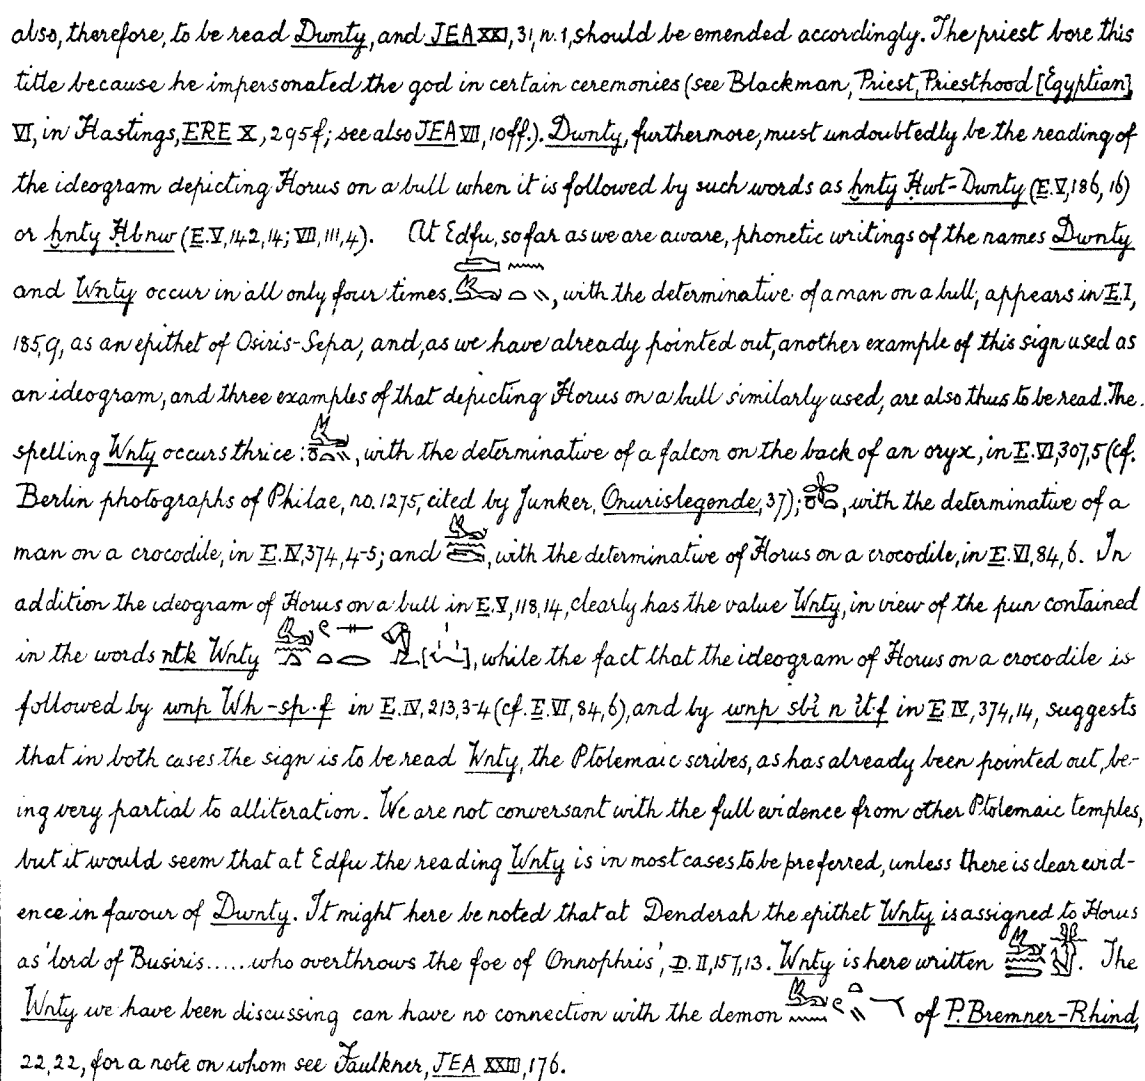 also, therefore, to be read Dwnty, and JEA XXI, 31, n. 1, should be emended accordingly. The priest bore this
title because he impersonated the god in certain ceremonies (see Blackman, Priest, Priesthood [Egyptian]
VI, in Hastings, ERE X, 295f; see also JEA VII, 10ff.). Dwnty, furthermore, must undoubtedly be the reading of
the ideogram depicting Horus on a bull when it is followed by such words as ḫnty Ḥwt-Dwnty (E. V, 186, 16)
or ḫnty Ḥbnw (E. V, 142, 14; VII, 111, 4). At Edfu, so far as we are aware, phonetic writings of the names Dwnty
and Wnty occur in all only four times. , with the determinative of a man on a bull, appears in E. I,
185, 9, as an epithet of Osiris-Sepa, and, as we have already pointed out, another example of this sign used as
an ideogram, and three examples of that depicting Horus on a bull similarly used, are also thus to be read. The
spelling Wnty occurs thrice: , with the determinative of a falcon on the back of an oryx, in E. VI, 307, 5 (cf.
Berlin photographs of Philae, no. 1275, cited by Junker, Onurislegende, 37); , with the determinative of a
man on a crocodile, in E. IV, 374, 4-5; and , with the determinative of Horus on a crocodile, in E. VI, 84, 6. In
addition the ideogram of Horus on a bull in E. V, 118, 14, clearly has the value Wnty, in view of the pun contained
in the words ntk Wnty [ ], while the fact that the ideogram of Horus on a crocodile is
followed by wnp Wh-sp.f in E. IV, 213, 3-4 (cf. E. VI, 84, 6), and by wnp sbỉ n ỉt.f in E. IV, 374, 14, suggests
that in both cases the sign is to be read Wnty, the Ptolemaic scribes, as has already been pointed out, be-
ing very partial to alliteration. We are not conversant with the full evidence from other Ptolemaic temples,
but it would seem that at Edfu the reading Wnty is in most cases to be preferred, unless there is clear evid-
ence in favour of Dwnty. It might here be noted that at Denderah the epithet Wnty is assigned to Horus
as 'lord of Busiris......who overthrows the foe of Onnophris', D. II, 157, 13. Wnty is here written . The
Wnty we have been discussing can have no connection with the demon of P. Bremner-Rhind,
22, 22, for a note on whom see Faulkner, JEA XXIII, 176.